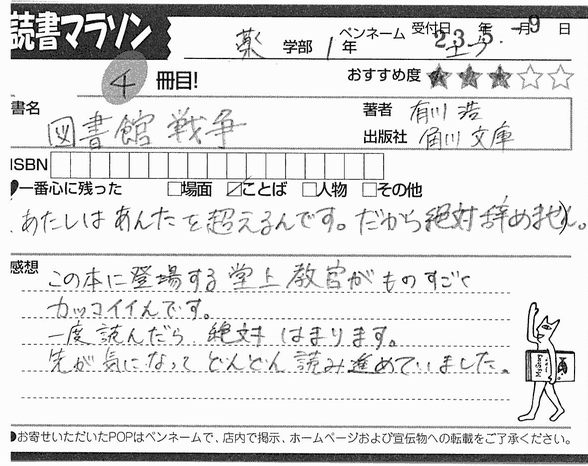 読書マラソン
薬 学部 1 年 ペンネーム 受付日 23 年 5 月 -9 日
4 冊目! おすすめ度 ★★★☆☆
書名 図書館戦争
著者 有川 浩
出版社 角川文庫
ISBN
一番心に残った □場面 ☑ことば □人物 □その他
あたしはあんたを超えるんです。だから絶対辞めません。
感想
この本に登場する堂上教官がものすごく
カッコイイんです。
一度読んだら 絶対 はまります。
先が気になって どんどん 読み進めていました。
●お寄せいただいたPOPはペンネームで、店内で掲示、ホームページおよび宣伝物への転載をご了承ください。